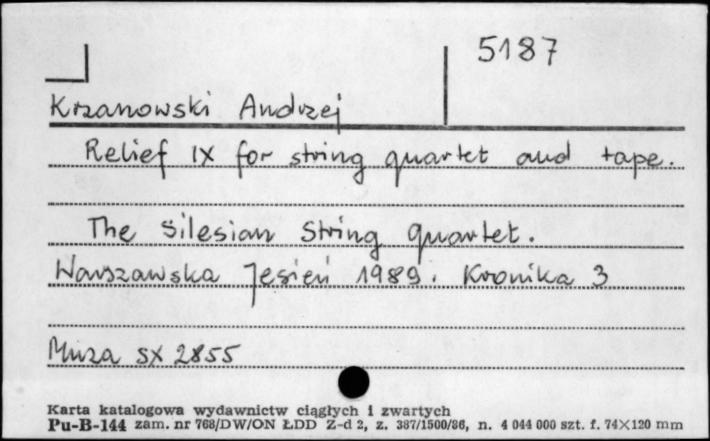 5187
Krzanowski Andrzej
Relief IX for string quartet and tape.
The Silesian String Quartet.
Warszawska Jesień 1989. Kronika 3
Muza SX 2855
Karta katalogowa wydawnictw ciągłych i zwartych
Pu-B-144 zam. nr 768/DW/ON ŁDD Z-d 2, z. 387/1500/86, n. 4 044 000 szt. f. 74×120 mm